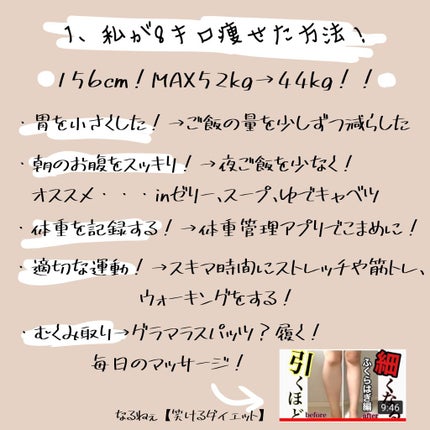 1、私が8キロ痩せた方法！
156cm！MAX52kg→44kg！！
・胃を小さくした！→ご飯の量を少しずつ減らした
・朝のお腹をスッキリ！→夜ご飯を少なく！
オススメ・・・inゼリー、スープ、ゆでキャベツ
・体重を記録する！→体重管理アプリでこまめに！
・適切な運動！→スキマ時間にストレッチや筋トレ、
ウォーキングをする！
・むくみ取り→グラマラスパッツ？履く！
毎日のマッサージ！
引くほど
細くなる
ふくらはぎ編
before
after
9:46
なるねぇ【笑けるダイエット】